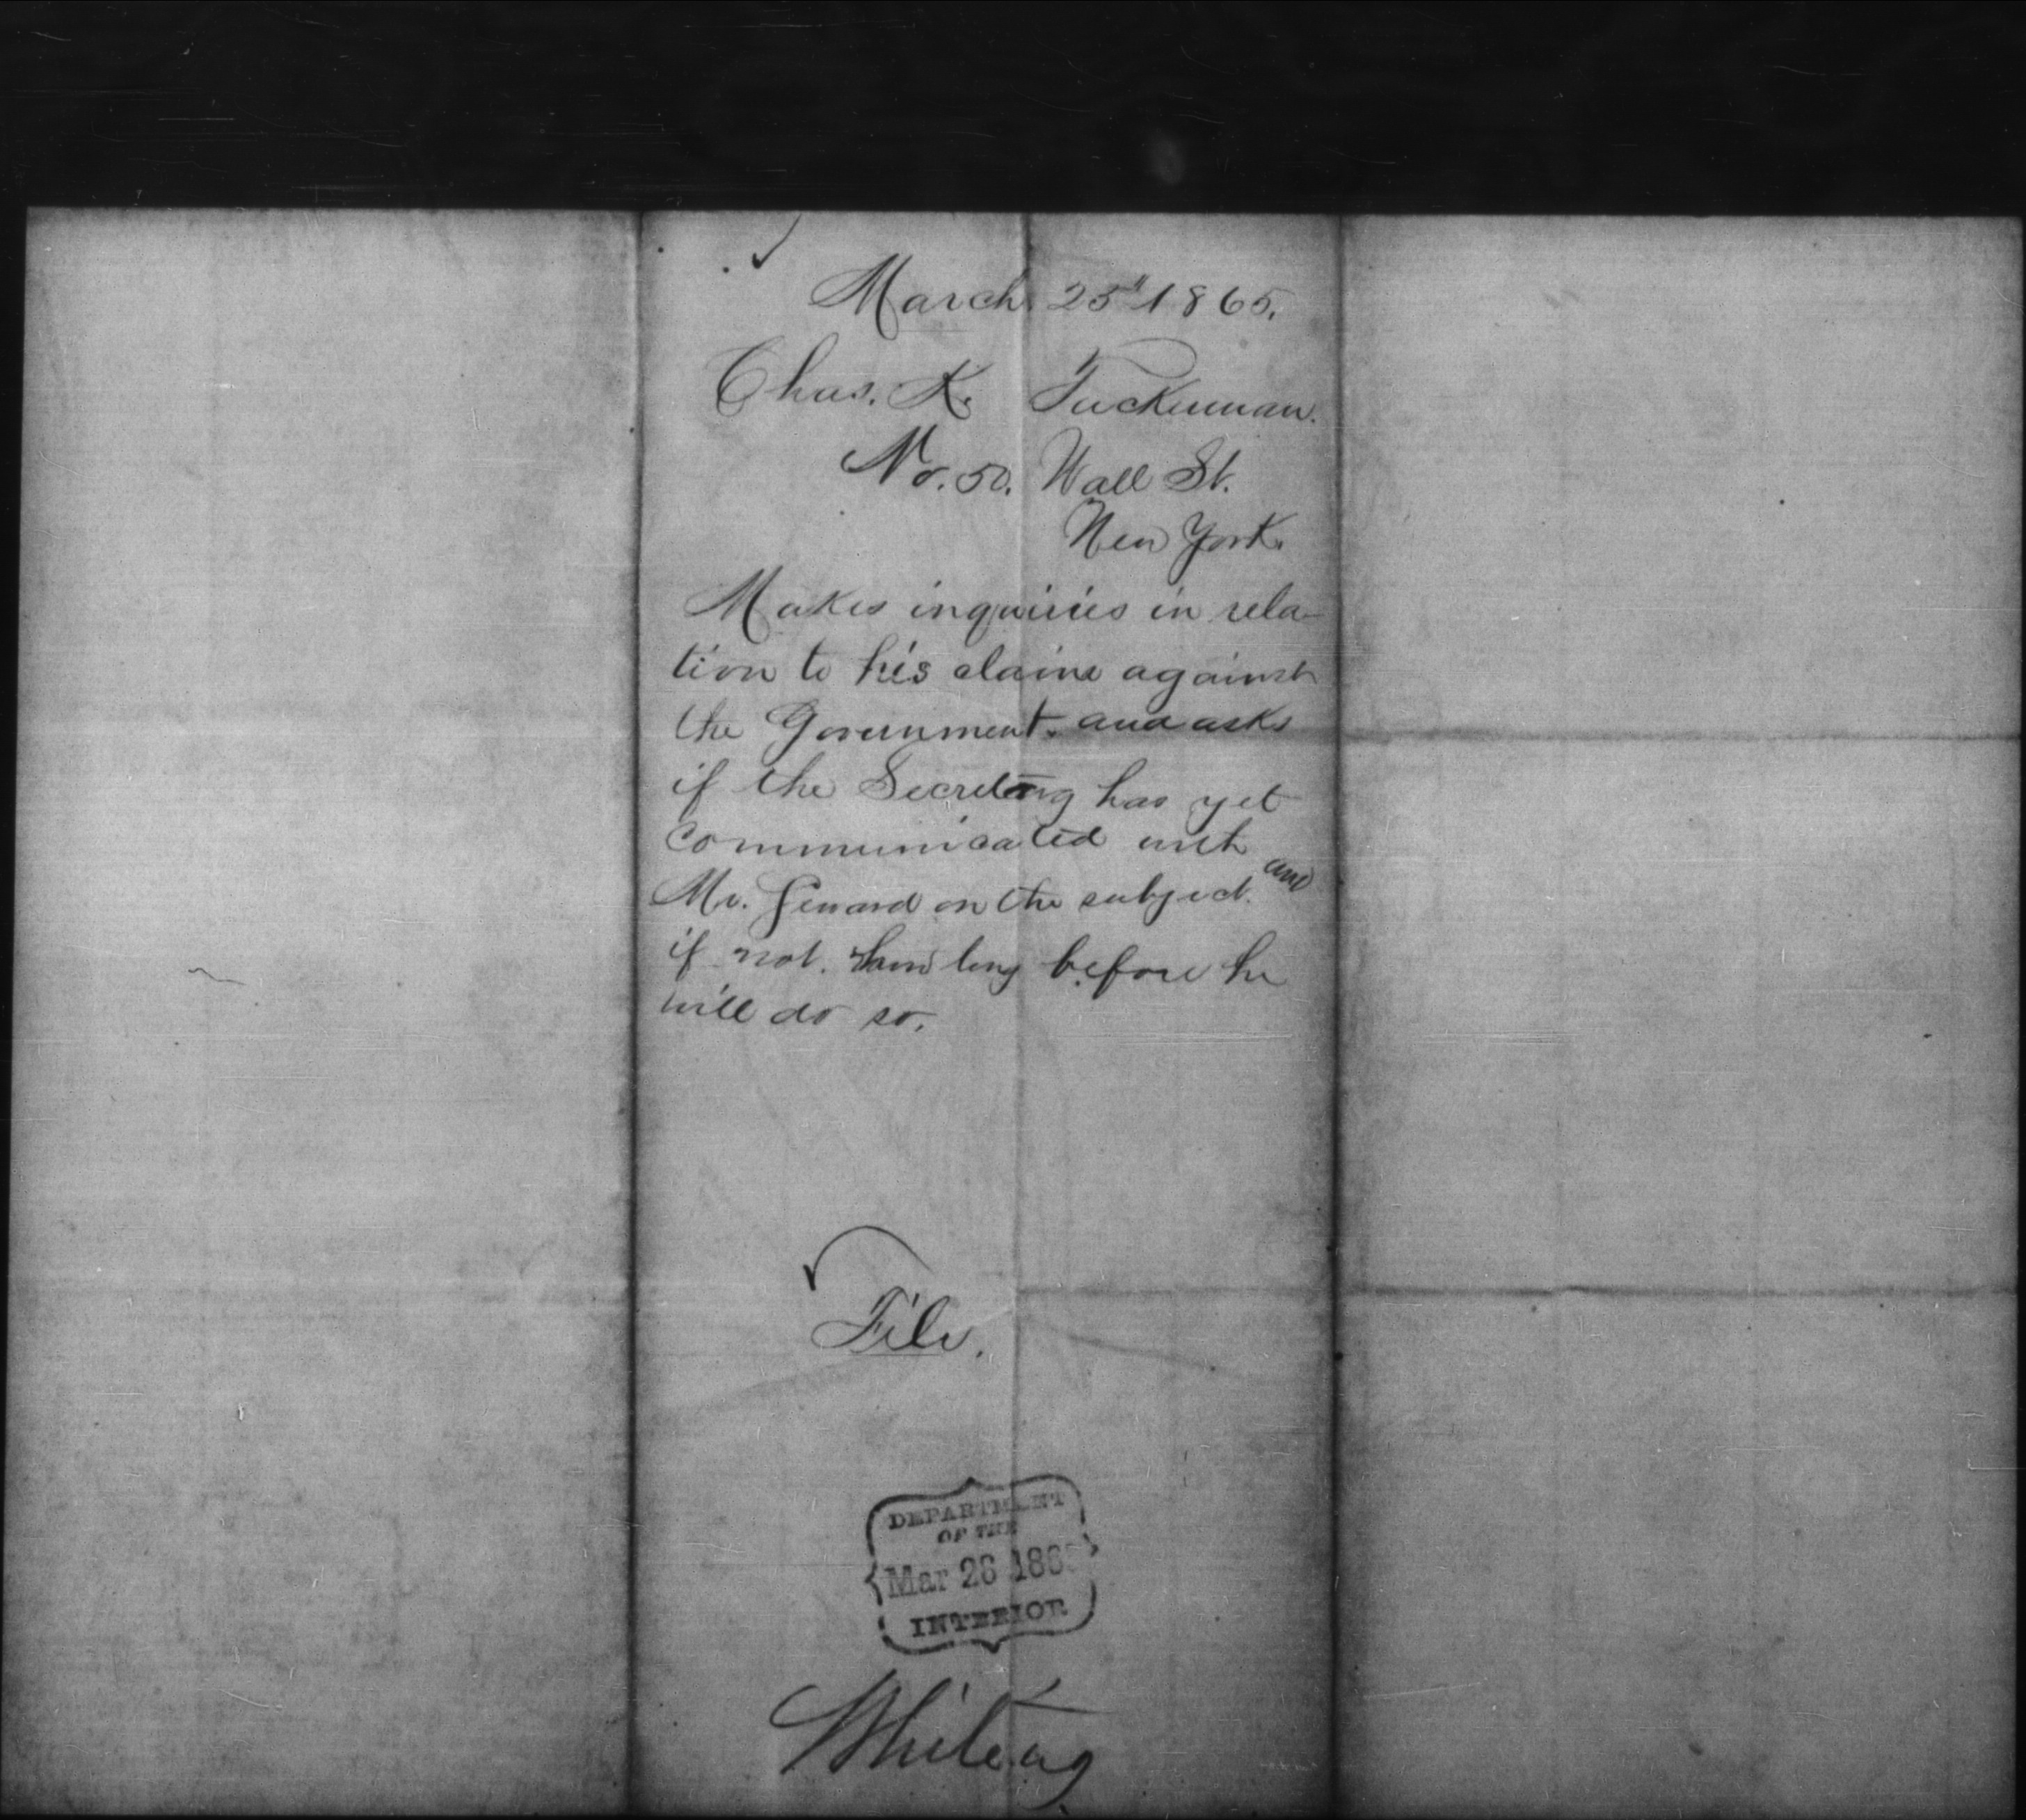 March 25" 1865.
Chas. K. Tuckerman.
No. 50. Wall St.
New York.
Makes inquiries in rela-
tion to his claim against
the Government. and asks
if the Secretary has yet
communicated with
Mr. Seward on the subject. and
if not. how long before he
will do so.
File.
DEPARTMENT
OF THE
Mar 26 1865
INTERIOR
Whiting